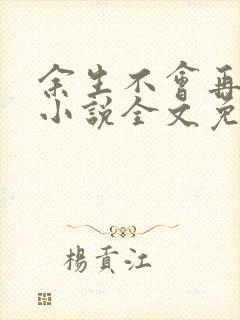 余生不會再
小說全文免
楊貢江